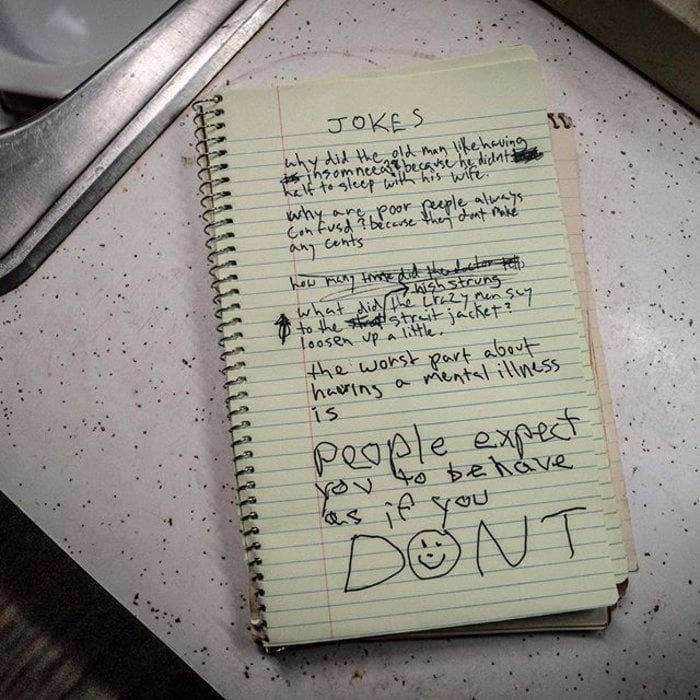 JOKES
why did the old man like having
insomneea? because he didnt
half to sleep with his wife.
why are poor peeple always
confusd? because they dont make
any cents
how many did the doctor
high strung
what did the crazy man say
to the strait jacket?
loosen up a little.
the worst part about
having a mental illness
is
people expect
you to behave
as if you
DONT